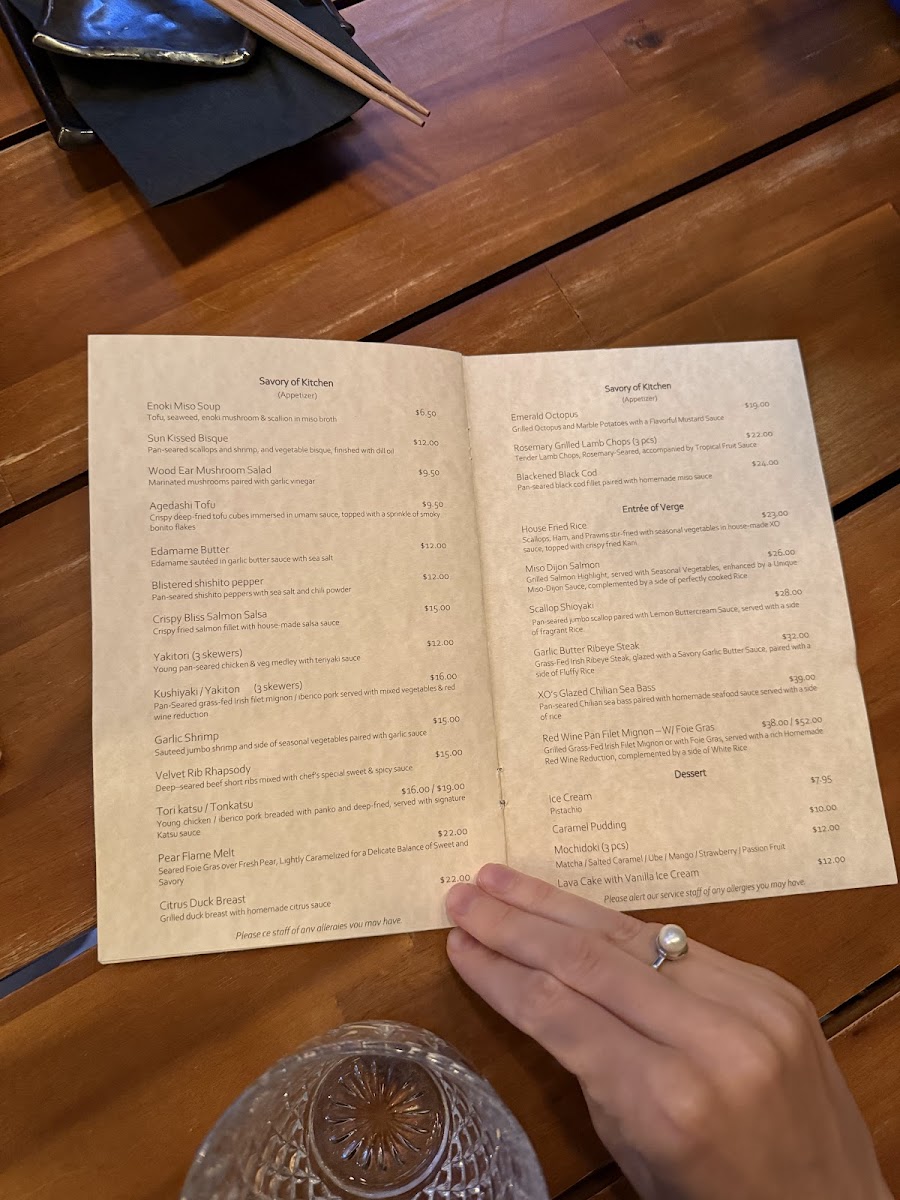 Savory of Kitchen
(Appetizer)
Enoki Miso Soup $6.50
Tofu, seaweed, enoki mushroom & scallion in miso broth
Sun Kissed Bisque $12.00
Pan-seared scallops and shrimp, and vegetable bisque, finished with dill oil
Wood Ear Mushroom Salad $9.50
Marinated mushrooms paired with garlic vinegar
Agedashi Tofu $9.50
Crispy deep-fried tofu cubes immersed in umami sauce, topped with a sprinkle of smoky
bonito flakes
Edamame Butter $12.00
Edamame sautéed in garlic butter sauce with sea salt
Blistered shishito pepper $12.00
Pan-seared shishito peppers with sea salt and chili powder
Crispy Bliss Salmon Salsa $15.00
Crispy fried salmon fillet with house-made salsa sauce
Yakitori (3 skewers) $12.00
Young pan-seared chicken & veg medley with teriyaki sauce
Kushiyaki / Yakiton (3 skewers) $16.00
Pan-Seared grass-fed Irish filet mignon / iberico pork served with mixed vegetables & red
wine reduction
Garlic Shrimp $15.00
Sauteed jumbo shrimp and side of seasonal vegetables paired with garlic sauce
Velvet Rib Rhapsody $15.00
Deep-seared beef short ribs mixed with chef's special sweet & spicy sauce
Tori katsu / Tonkatsu $16.00 / $19.00
Young chicken / iberico pork breaded with panko and deep-fried, served with signature
Katsu sauce
Pear Flame Melt $22.00
Seared Foie Gras over Fresh Pear, Lightly Caramelized for a Delicate Balance of Sweet and
Savory
Citrus Duck Breast $22.00
Grilled duck breast with homemade citrus sauce
Please ce staff of any allergies you may have
Savory of Kitchen
(Appetizer)
Emerald Octopus $19.00
Grilled Octopus and Marble Potatoes with a Flavorful Mustard Sauce
Rosemary Grilled Lamb Chops (3 pcs) $22.00
Tender Lamb Chops, Rosemary-Seared, accompanied by Tropical Fruit Sauce
Blackened Black Cod $24.00
Pan-seared black cod fillet paired with homemade miso sauce
Entrée of Verge
House Fried Rice $23.00
Scallops, Ham, and Prawns stir-fried with seasonal vegetables in house-made XO
sauce, topped with crispy fried Kani.
Miso Dijon Salmon $26.00
Grilled Salmon Highlight, served with Seasonal Vegetables, enhanced by a Unique
Miso-Dijon Sauce, complemented by a side of perfectly cooked Rice
Scallop Shioyaki $28.00
Pan-seared jumbo scallop paired with Lemon Buttercream Sauce, served with a side
of fragrant Rice
Garlic Butter Ribeye Steak $32.00
Grass-Fed Irish Ribeye Steak, glazed with a Savory Garlic Butter Sauce, paired with a
side of Fluffy Rice
XO's Glazed Chilian Sea Bass $39.00
Pan-seared Chilian sea bass paired with homemade seafood sauce served with a side
of rice
Red Wine Pan Filet Mignon – W/ Foie Gras $38.00 / $52.00
Grilled Grass-Fed Irish Filet Mignon or with Foie Gras, served with a rich Homemade
Red Wine Reduction, complemented by a side of White Rice
Dessert
Ice Cream $7.95
Pistachio
Caramel Pudding $10.00
Mochidoki (3 pcs) $12.00
Matcha / Salted Caramel / Ube / Mango / Strawberry / Passion Fruit
Lava Cake with Vanilla Ice Cream $12.00
Please alert our service staff of any allergies you may have